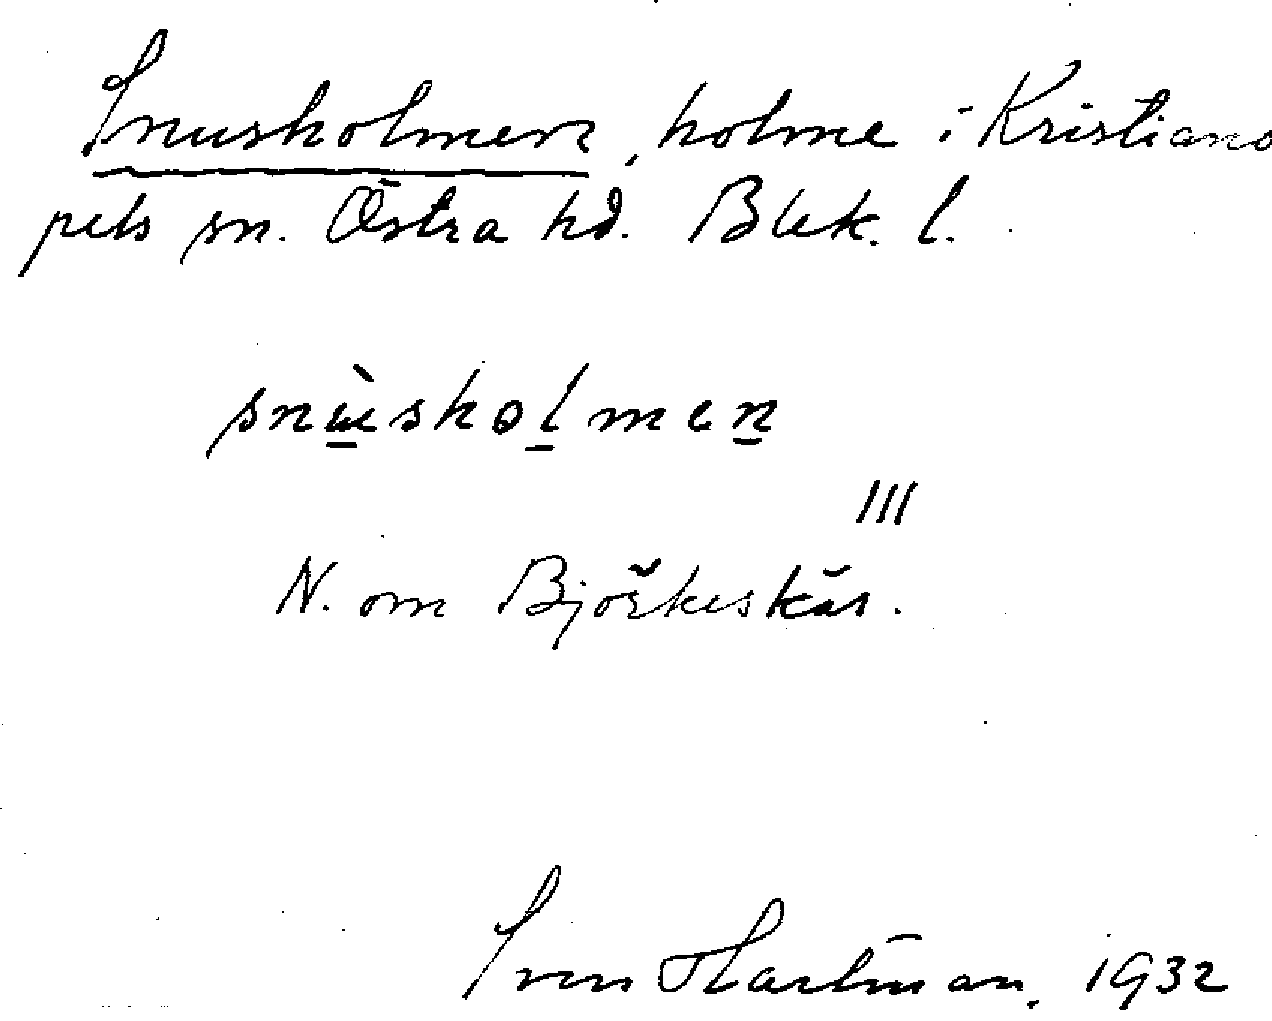 Snusholmen, holme i Kristiano
pels sn. Östra hd. Blek. l.
snùsholmen
III
N. om Björkeskär.
Sven Hartman, 1932